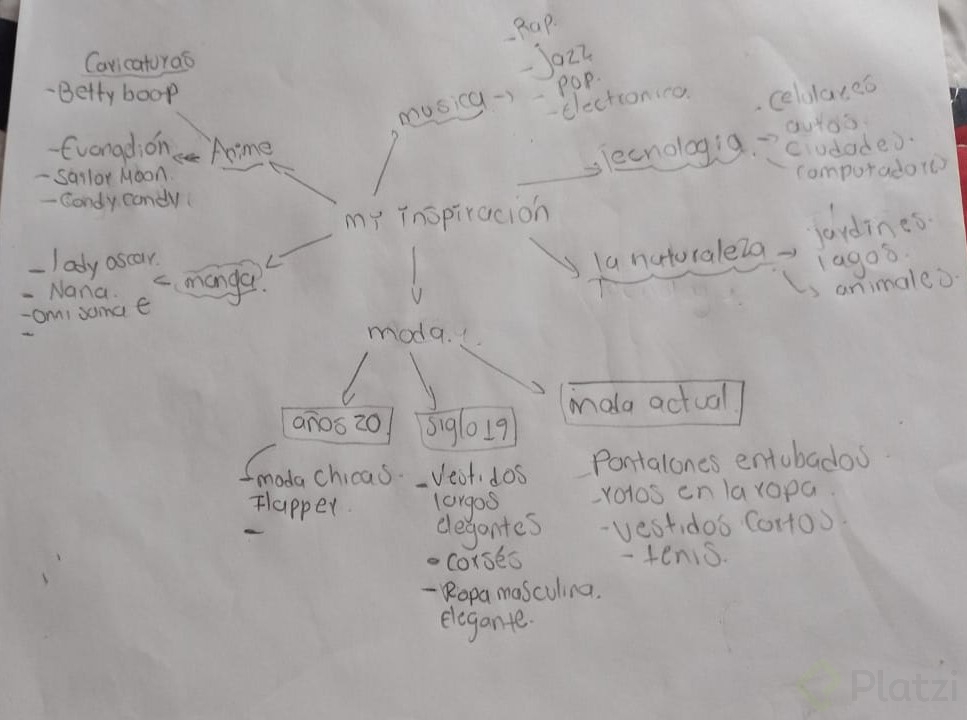 Caricaturas
-Betty boop
-Evangelión
Anime
-Sailor Moon.
-Candy candy
musica
-Rap.
-Jazz
-pop.
-Electronica.
Tecnologia
-celulares
autos.
ciudades.
computadores
mi inspiración
la naturaleza
jardines.
lagos.
animales.
manga.
-lady oscar.
-Nana.
-omi sama e
-
moda.
años 20
siglo 19
moda actual
-moda chicas
Flapper.
-
-Vestidos
largos
elegantes
•corsés
-Ropa masculina.
Elegante.
Pantalones entubados
-rotos en la ropa
-vestidos cortos.
-tenis.
Platzi